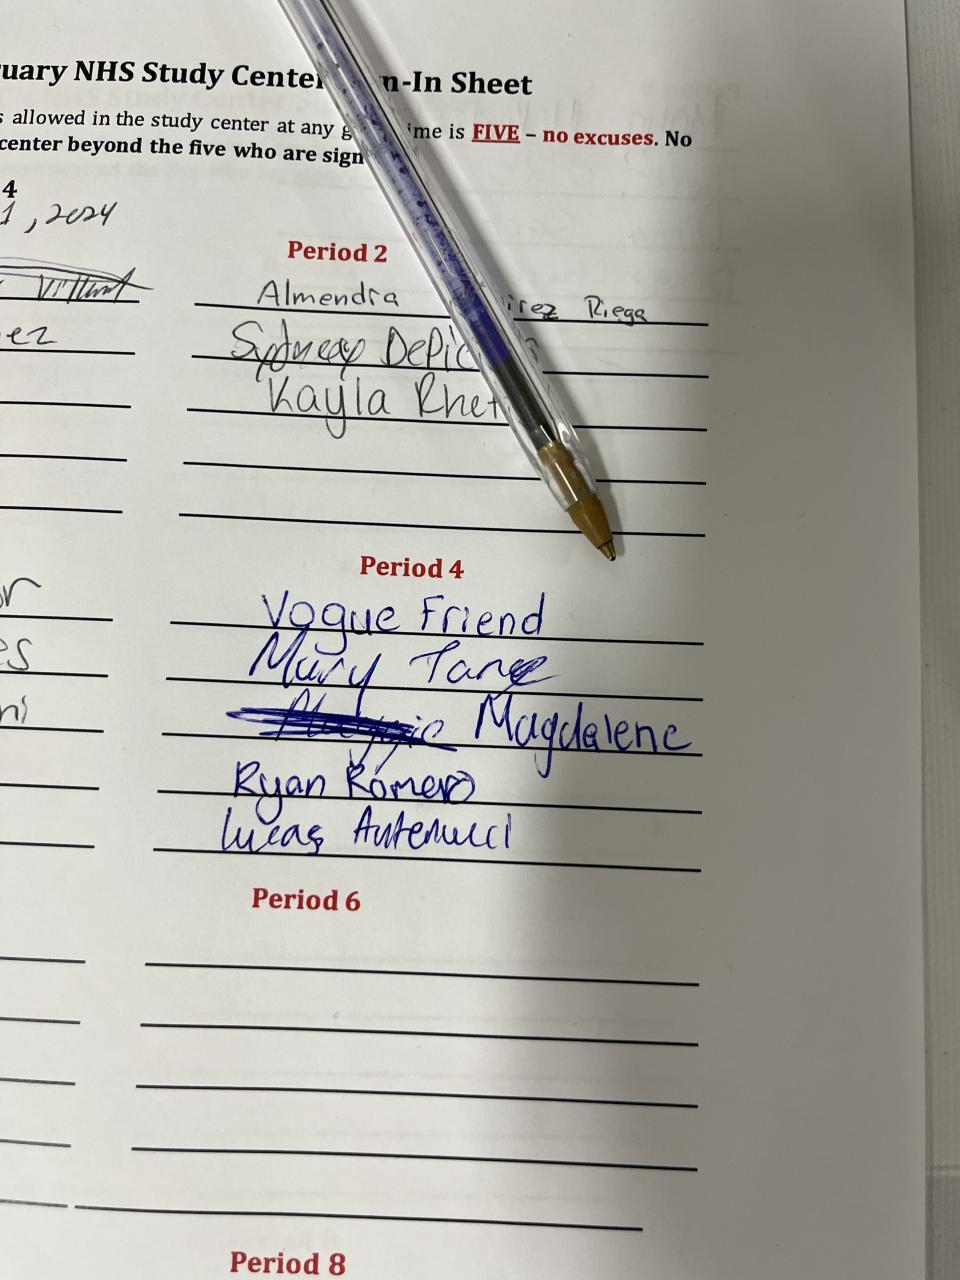 NHS Study Center n-In Sheet
allowed in the study center at any g ime is FIVE – no excuses. No
center beyond the five who are sign
4
1, 2024
Period 2
Almendra irez Riega
ez
Sydney DePic
Kayla Rhet
Period 4
or
Vogue Friend
es
Mary Jane
ni
Magdalene
Ryan Romero
Lucas Antenucci
Period 6
Period 8